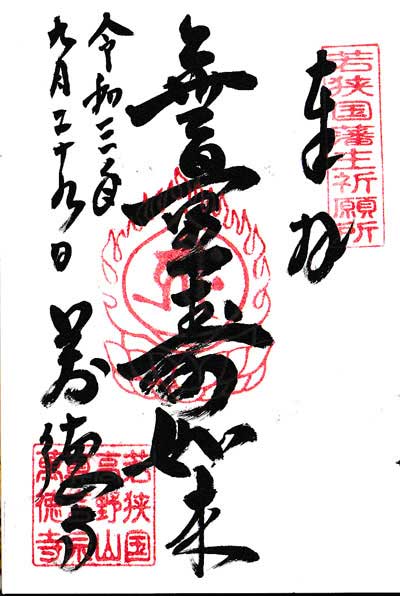 若狭国藩主祈願所
奉拝
無量寿如来
令和三年
九月二十九日
萬徳寺
若狭国
高野山
真言宗
萬徳寺